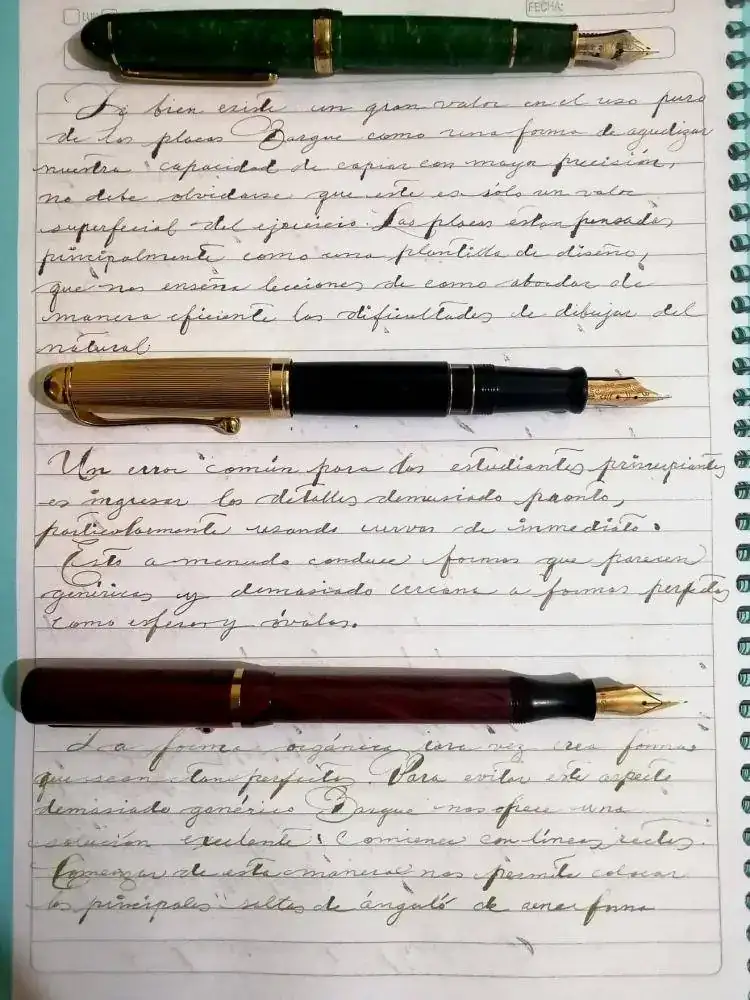 FECHA:
Si bien existe un gran valor en el uso puro
de las placas Bargue como una forma de agudizar
nuestra capacidad de copiar con mayor precisión,
no debe olvidarse que este es sólo un valor
superficial del ejercicio. Las placas estan pensadas
principalmente como una plantilla de diseño,
que nos enseña lecciones de como abordar de
manera eficiente las dificultades de dibujar del
natural
Un error común para los estudiantes principiantes
es ingresar los detalles demasiado pronto,
particularmente usando curvas de inmediato.
Esto a menudo conduce formas que parecen
genéricas y demasiado cercana a formas perfectas
como esferas y óvalos.
La forma orgánica rara vez crea formas
que sean tan perfectas. Para evitar este aspecto
demasiado genérico Bargue nos ofrece una
solución excelente: Comience con líneas rectas.
Comenzar de esta manera nos permite colocar
los principales saltos de ángulo de una forma